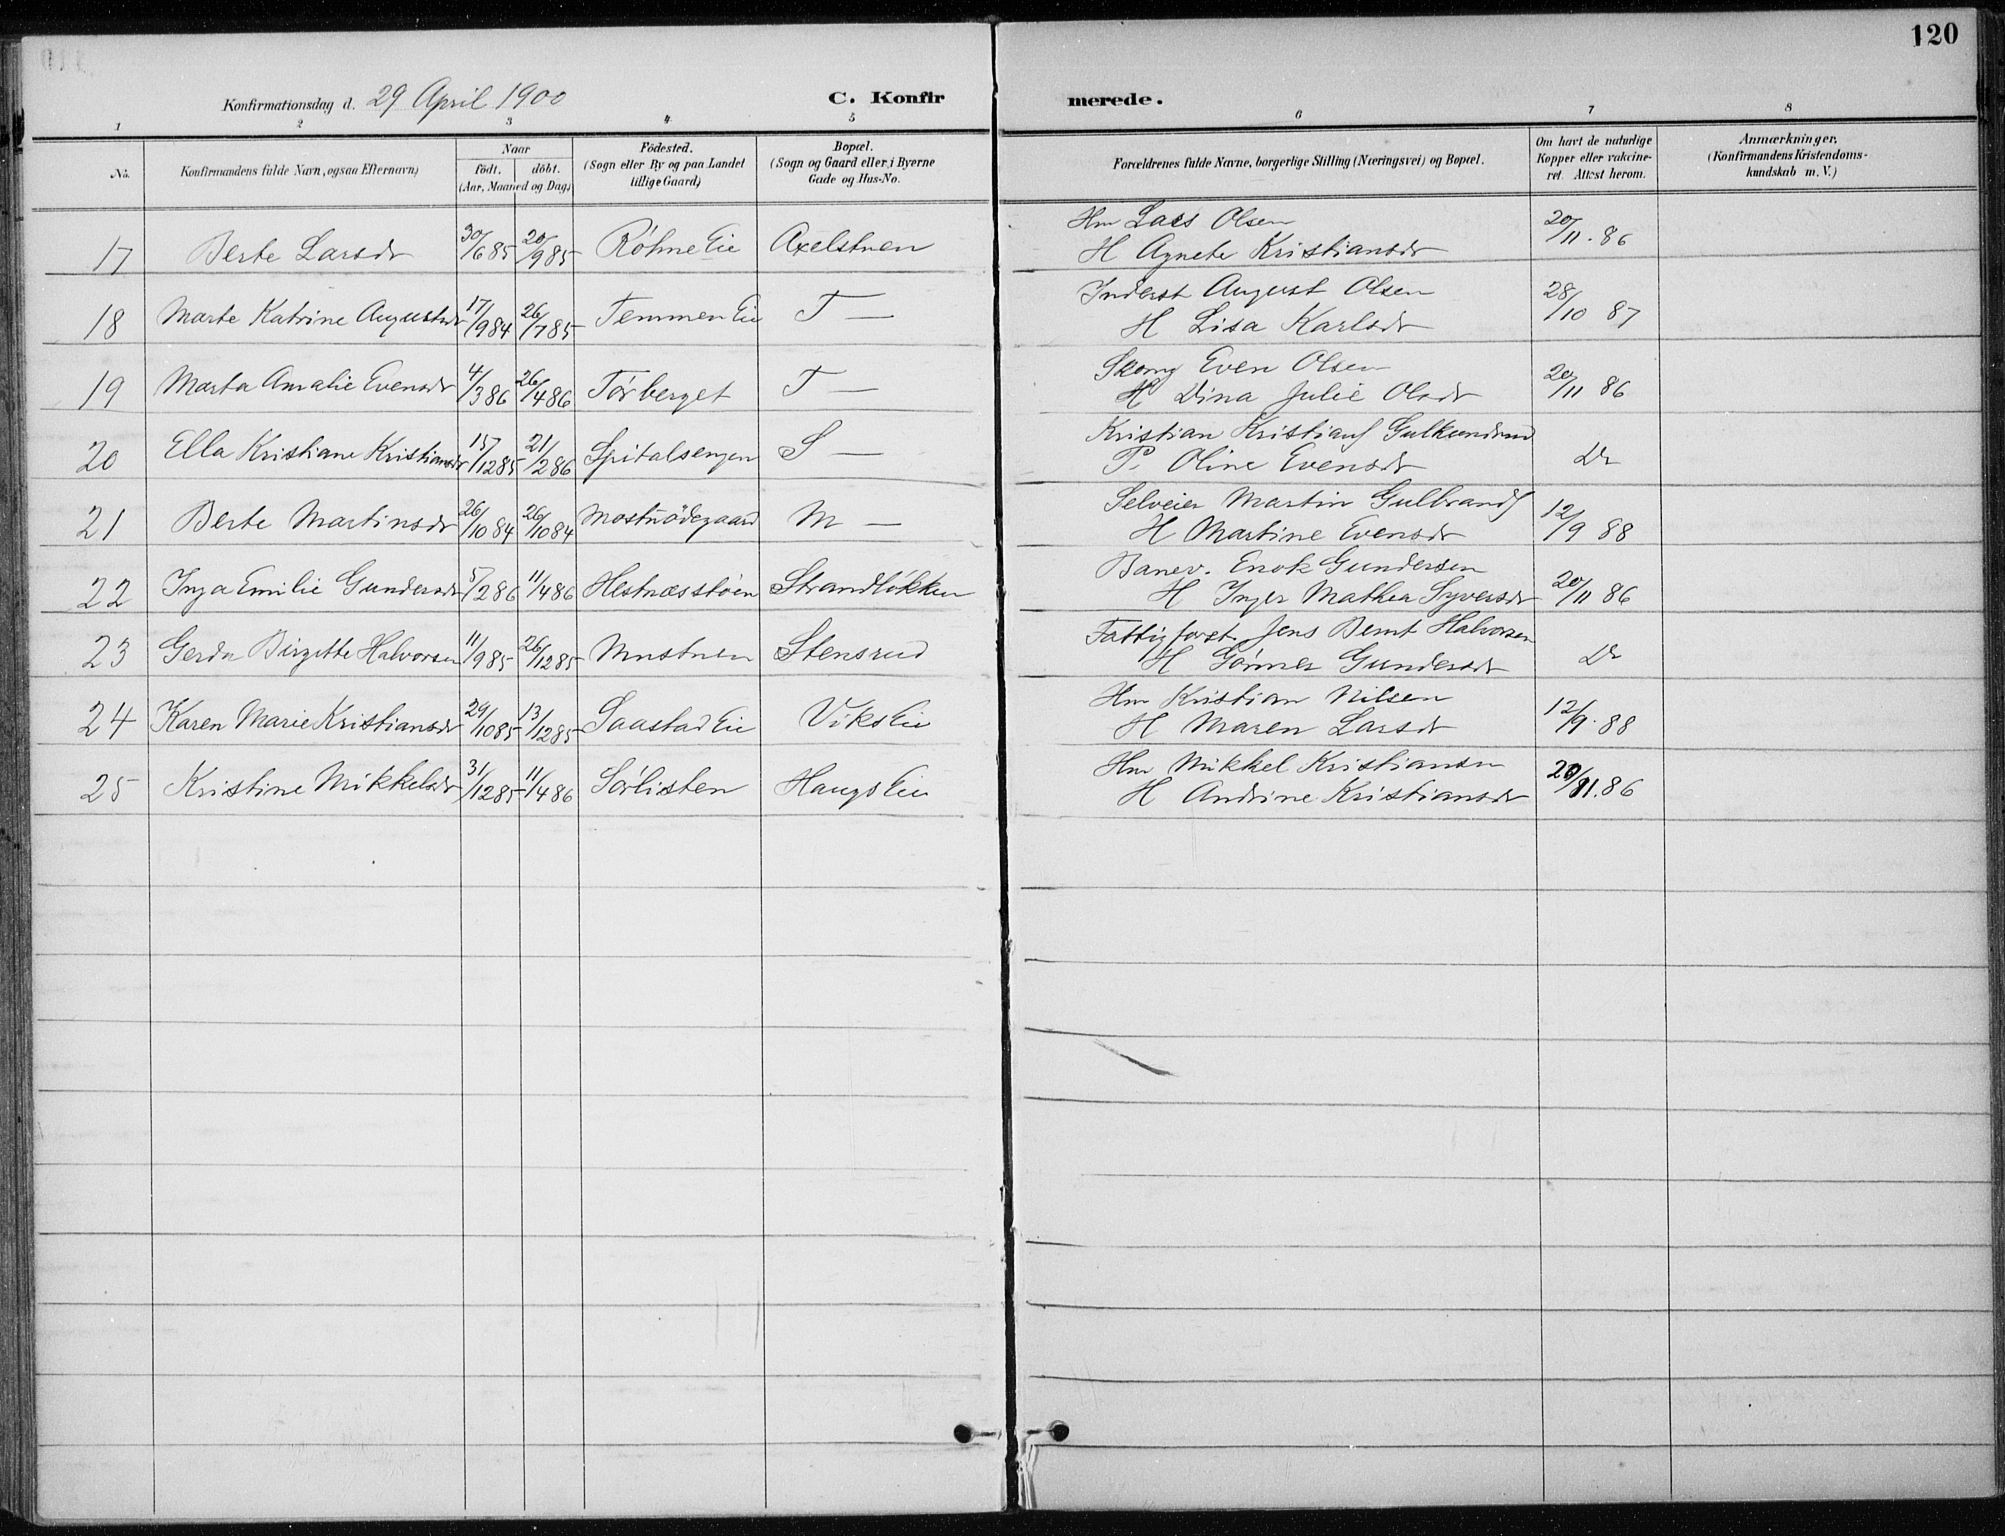 120
Konfirmationsdag d. 29 April 1900 C. Konfirmerede.
1 2 3 4 5 6 7 8
No. Konfirmandens fulde Navn, ogsaa Efternavn) Naar födt. döbt. (Aar, Maaned og Dag) Födested. (Sogn eller By og paa Landet tillige Gaard) Bopæl. (Sogn og Gaard eller i Byerne Gade og Hus-No. Forældrenes fulde Navne, borgerlige Stilling (Næringsvei) og Bopæl. Om havt de naturlige Kopper eller vakcineret. Attest herom. Anmærkninger. (Konfirmandens Kristendomskundskab m. V.)
17 Berte Larsdr 30/6 85 20/9 85 Röhne Eie Axelstuen Hm Lars Olsen 20/11. 86
H Agnete Kristiansdr
18 Marte Katrine Augustsdr 17/9 84 26/7 85 Temmen Eie T — Inderst August Olsen 28/10 87
H Lisa Karlsdr
19 Marta Amalie Evensdr 4/3 86 26/4 86 Törberget T — Skomg Even Olsen 20/11 86
H Dina Julie Olsdr
20 Ella Kristiane Kristiansdr 15/12 85 21/2 86 Spitalsengen S — Kristian Kristians Gulkundrud
P. Oline Evensdr Do
21 Berte Martinsdr 26/10 84 26/10 84 Mostnödegaard M — Selveier Martin Gulbrands 12/9 88
H Martine Evensdr
22 Inga Emilie Gundersdr 5/2 86 11/4 86 Hestnæsstöen Strandlökken Banev. Enok Gundersen 20/11 86
H Inger Mathea Syversdr
23 Gerda Birgitte Halvorsen 11/9 85 26/12 85 Mustuen Stensrud Fattigforst. Jens Bernt Halvorsen
H Gönner Gundersdr Do
24 Karen Marie Kristiansdr 29/10 85 13/12 85 Saastad Eie Viks Eie Hm Kristian Nilsen 12/9. 88
H Maren Larsdr
25 Kristine Mikkelsdr 31/12 85 11/4 86 Sörlisten Haugs Eie Hm Mikkel Kristiansen 20/11. 86
H Andrine Kristiansdr